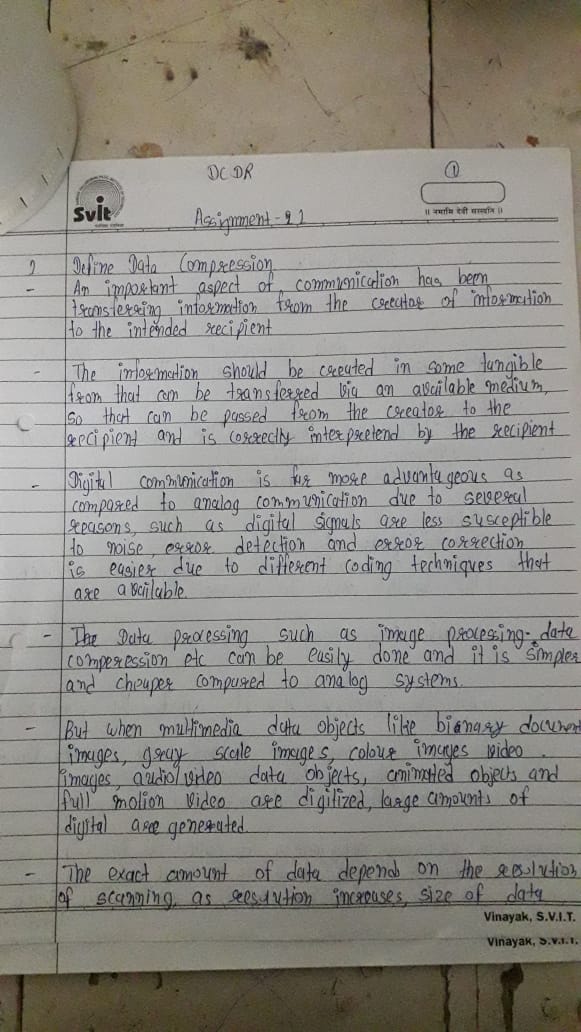 DCDR
1
Svit
॥ नमामि देवी सरस्वति ॥
Assignment-21
Define Data Compression
- An important aspect of communication has been
transferring information from the creator of information
to the intended recipient
- The information should be created in some tangible
from that can be transferred via an available medium,
so that can be passed from the creator to the
recipient and is correctly interpretend by the recipient
- Digital communication is far more advantageous as
compared to analog communication due to several
reasons, such as digital signals are less susceptible
to noise, error detection and error correction
is easier due to different coding techniques that
are available.
- The Data processing such as image processing, data
comperession etc can be easily done and it is simpler
and cheaper compared to analog systems.
- But when multimedia data objects like bianary document
images, gray scale images, colour images video
images, audio/video data objects, animated objects and
full motion video are digitized, large amounts of
digital are generated
- The exact amount of data depend on the resolution
of scanning, as resolution increases, size of data
Vinayak, S.V.I.T.
Vinayak, S.V.I.T.